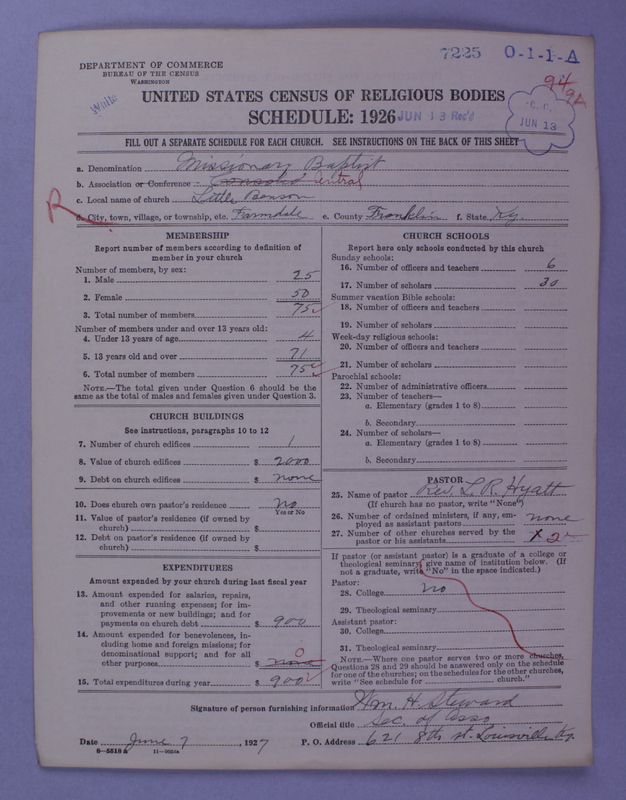 7225 0-1-1-A
DEPARTMENT OF COMMERCE
BUREAU OF THE CENSUS
WASHINGTON
94
94
White
UNITED STATES CENSUS OF RELIGIOUS BODIES
SCHEDULE: 1926 JUN 13 Rec'd
C. C.
JUN 13
FILL OUT A SEPARATE SCHEDULE FOR EACH CHURCH. SEE INSTRUCTIONS ON THE BACK OF THIS SHEET
a. Denomination Missionary Baptist
b. Association or Conference Consolid entral
c. Local name of church Little Benson
R
d. City, town, village, or township, etc. Farmdale e. County Franklin f. State Ky.
MEMBERSHIP
Report number of members according to definition of
member in your church
Number of members, by sex:
1. Male 25
2. Female 50
3. Total number of members 75
Number of members under and over 13 years old:
4. Under 13 years of age 4
5. 13 years old and over 71
6. Total number of members 75
NOTE.—The total given under Question 6 should be the
same as the total of males and females given under Question 3.
CHURCH BUILDINGS
See instructions, paragraphs 10 to 12
7. Number of church edifices 1
8. Value of church edifices $ 2000
9. Debt on church edifices $ none
10. Does church own pastor's residence No
Yes or No
11. Value of pastor's residence (if owned by
church) $
12. Debt on pastor's residence (if owned by
church) $
EXPENDITURES
Amount expended by your church during last fiscal year
13. Amount expended for salaries, repairs,
and other running expenses; for im-
provements or new buildings; and for
payments on church debt $ 900
14. Amount expended for benevolences, in-
cluding home and foreign missions; for
denominational support; and for all
other purposes $ none 0
15. Total expenditures during year $ 900
CHURCH SCHOOLS
Report here only schools conducted by this church
Sunday schools:
16. Number of officers and teachers 6
17. Number of scholars 30
Summer vacation Bible schools:
18. Number of officers and teachers
19. Number of scholars
Week-day religious schools:
20. Number of officers and teachers
21. Number of scholars
Parochial schools:
22. Number of administrative officers
23. Number of teachers—
a. Elementary (grades 1 to 8)
b. Secondary
24. Number of scholars—
a. Elementary (grades 1 to 8)
b. Secondary
PASTOR
25. Name of pastor Rev. L. R. Hyatt
(If church has no pastor, write "None")
26. Number of ordained ministers, if any, em-
ployed as assistant pastors none
27. Number of other churches served by the
pastor or his assistants 2
If pastor (or assistant pastor) is a graduate of a college or
theological seminary, give name of institution below. (If
not a graduate, write "No" in the space indicated.)
Pastor:
28. College No
29. Theological seminary
Assistant pastor:
30. College
31. Theological seminary
NOTE.—Where one pastor serves two or more churches,
Questions 28 and 29 should be answered only on the schedule
for one of the churches; on the schedules for the other churches,
write "See schedule for church."
Signature of person furnishing information Wm. H. Steward
Official title Sec. of Asso
Date June 7, 1927 P. O. Address 621 8th st. Louisville Ky.
8—5518 a 11—9554a